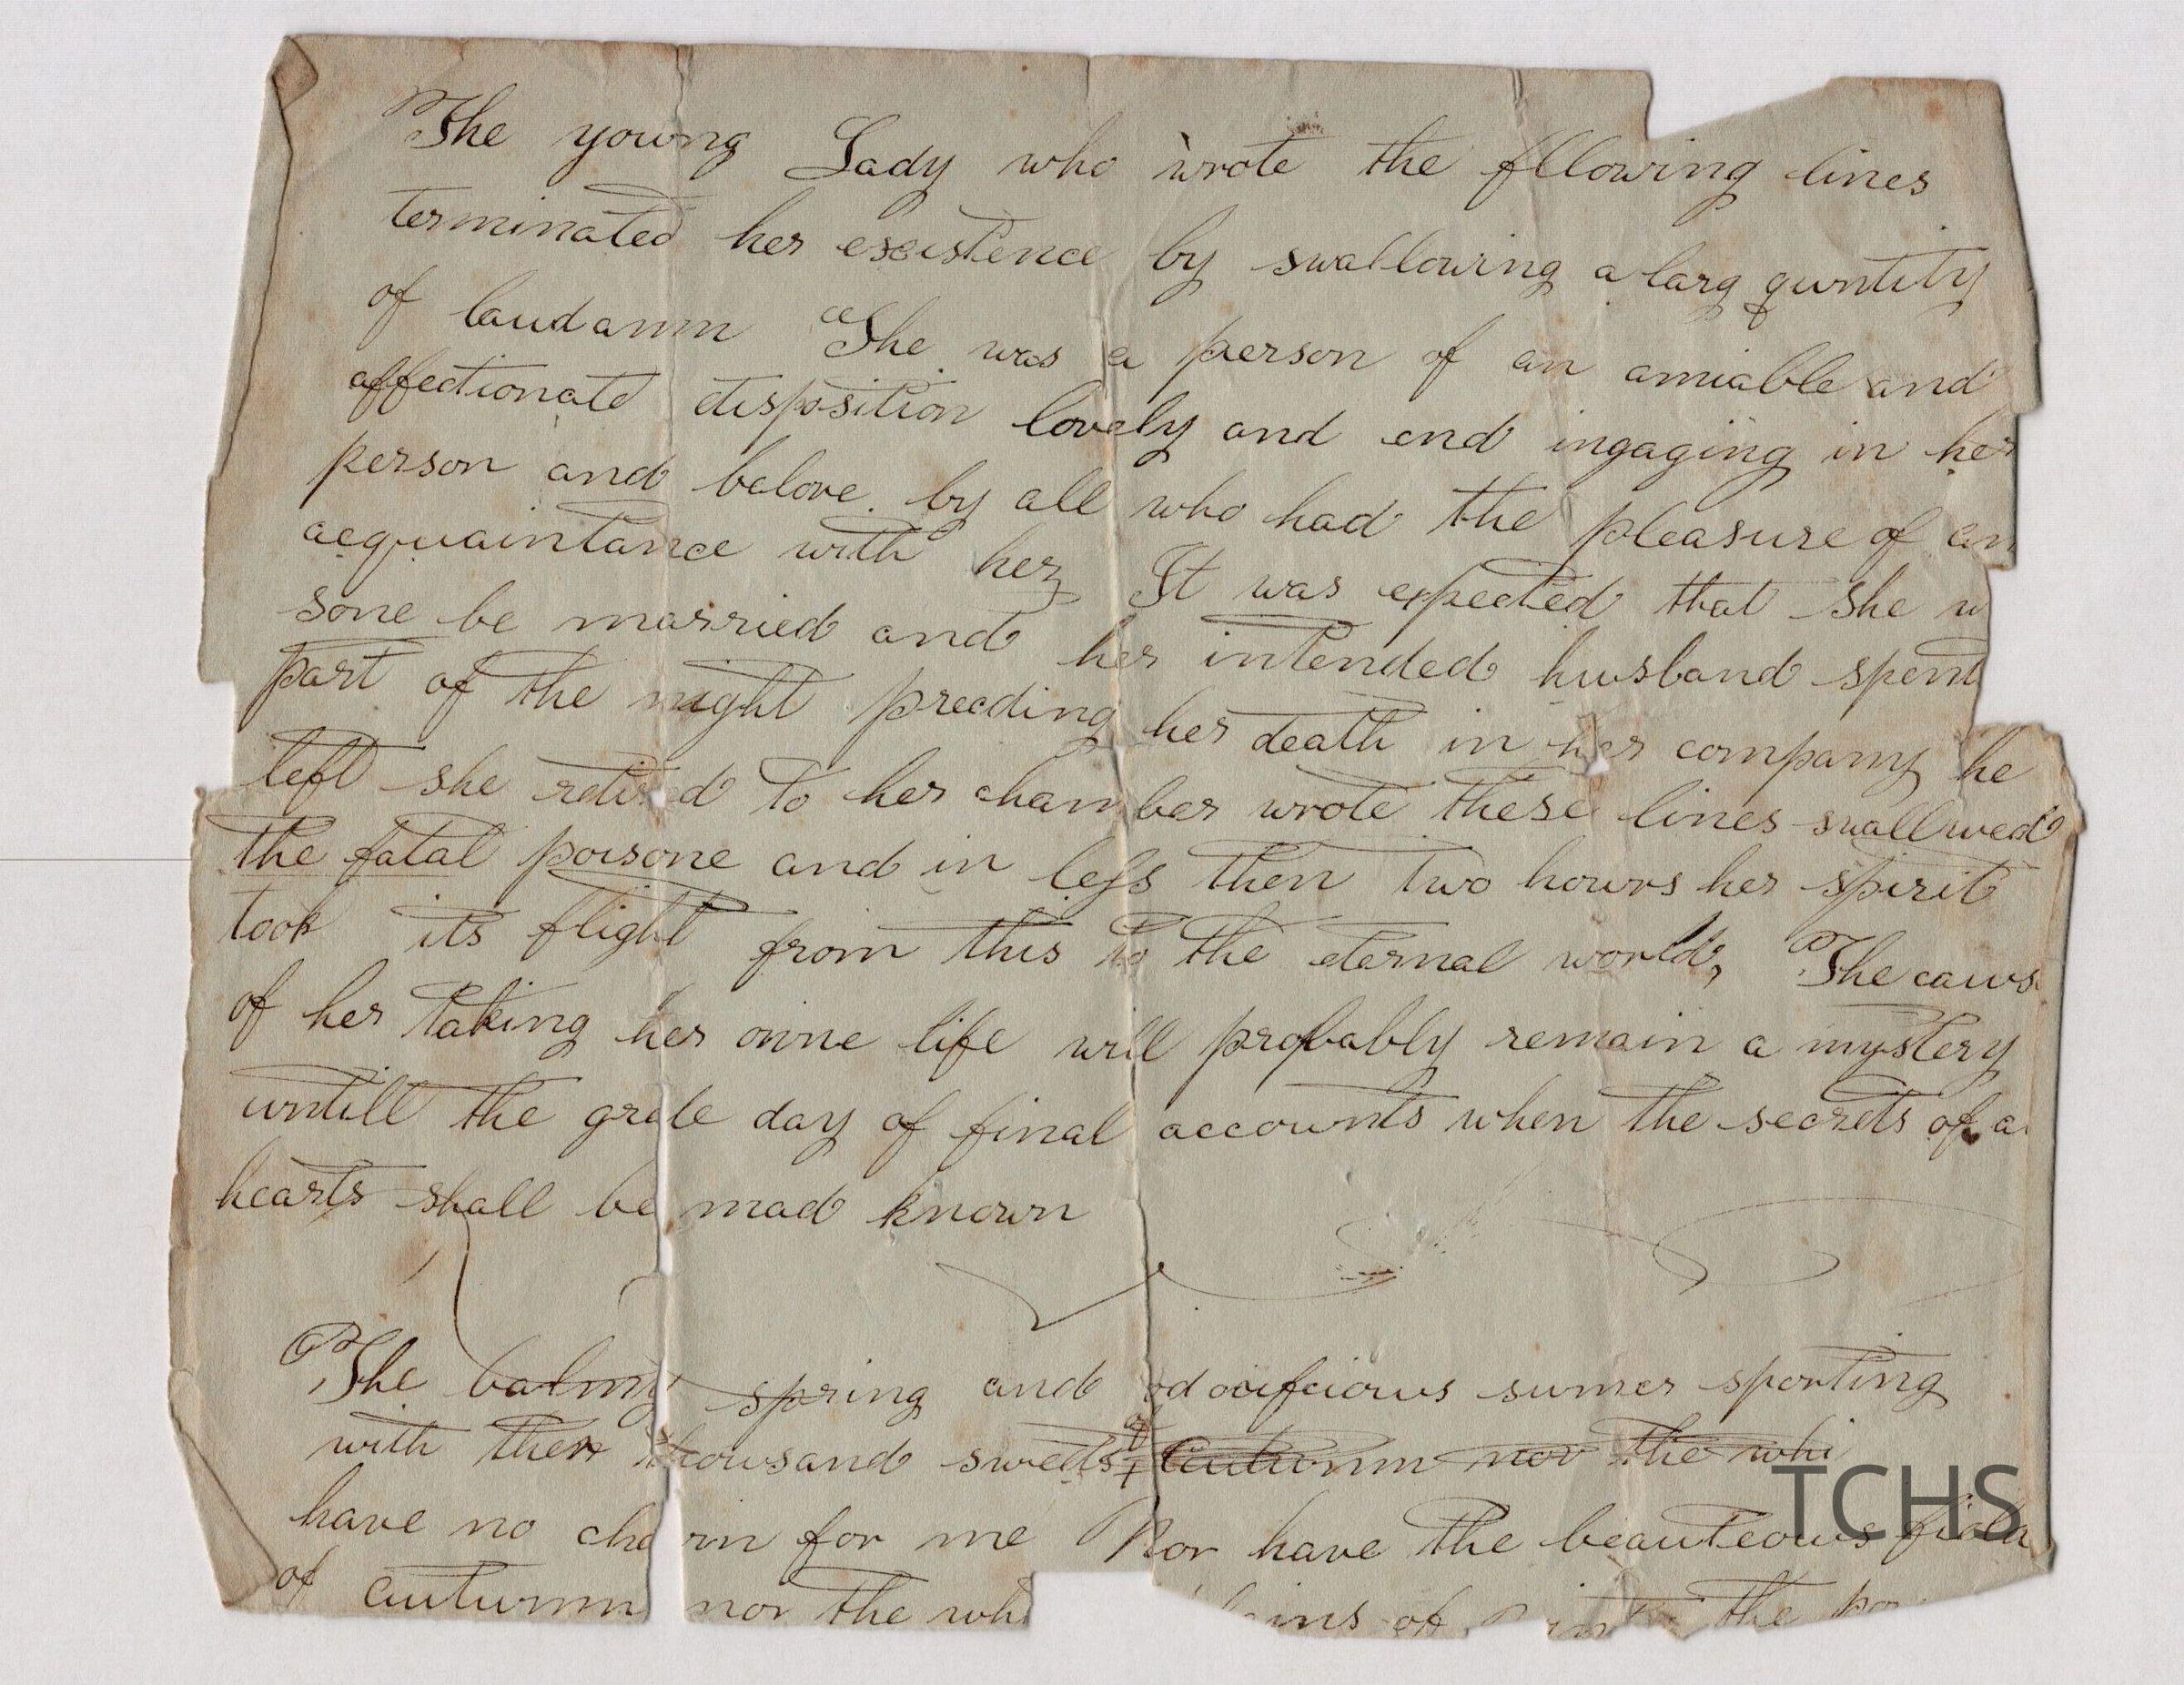 The young Lady who wrote the fllowing lines
terminated her existence by swallowing a larg quntity
of laudanm She was a person of an amiable and
affectionate disposition lovely and end ingaging in her
person and belove by all who had the pleasure of an
acquaintance with her It was expected that she w
sone be married and her intended husband spent
part of the night preceding her death in her company he
left she retired to her chamber wrote these lines swallwed
the fatal poisone and in less then two hours her spirit
took its flight from this to the eternal world, The caus
of her taking her onne life will probably remain a mystery
untill the grate day of final accounts when the secrets of a
hearts shall be mad known
The balmy spring and sumer sporting
with then thousand sweets & Autumn nor the whi
have no charm for me Nor have the beauteous
of autumn nor the whi of the
TCHS